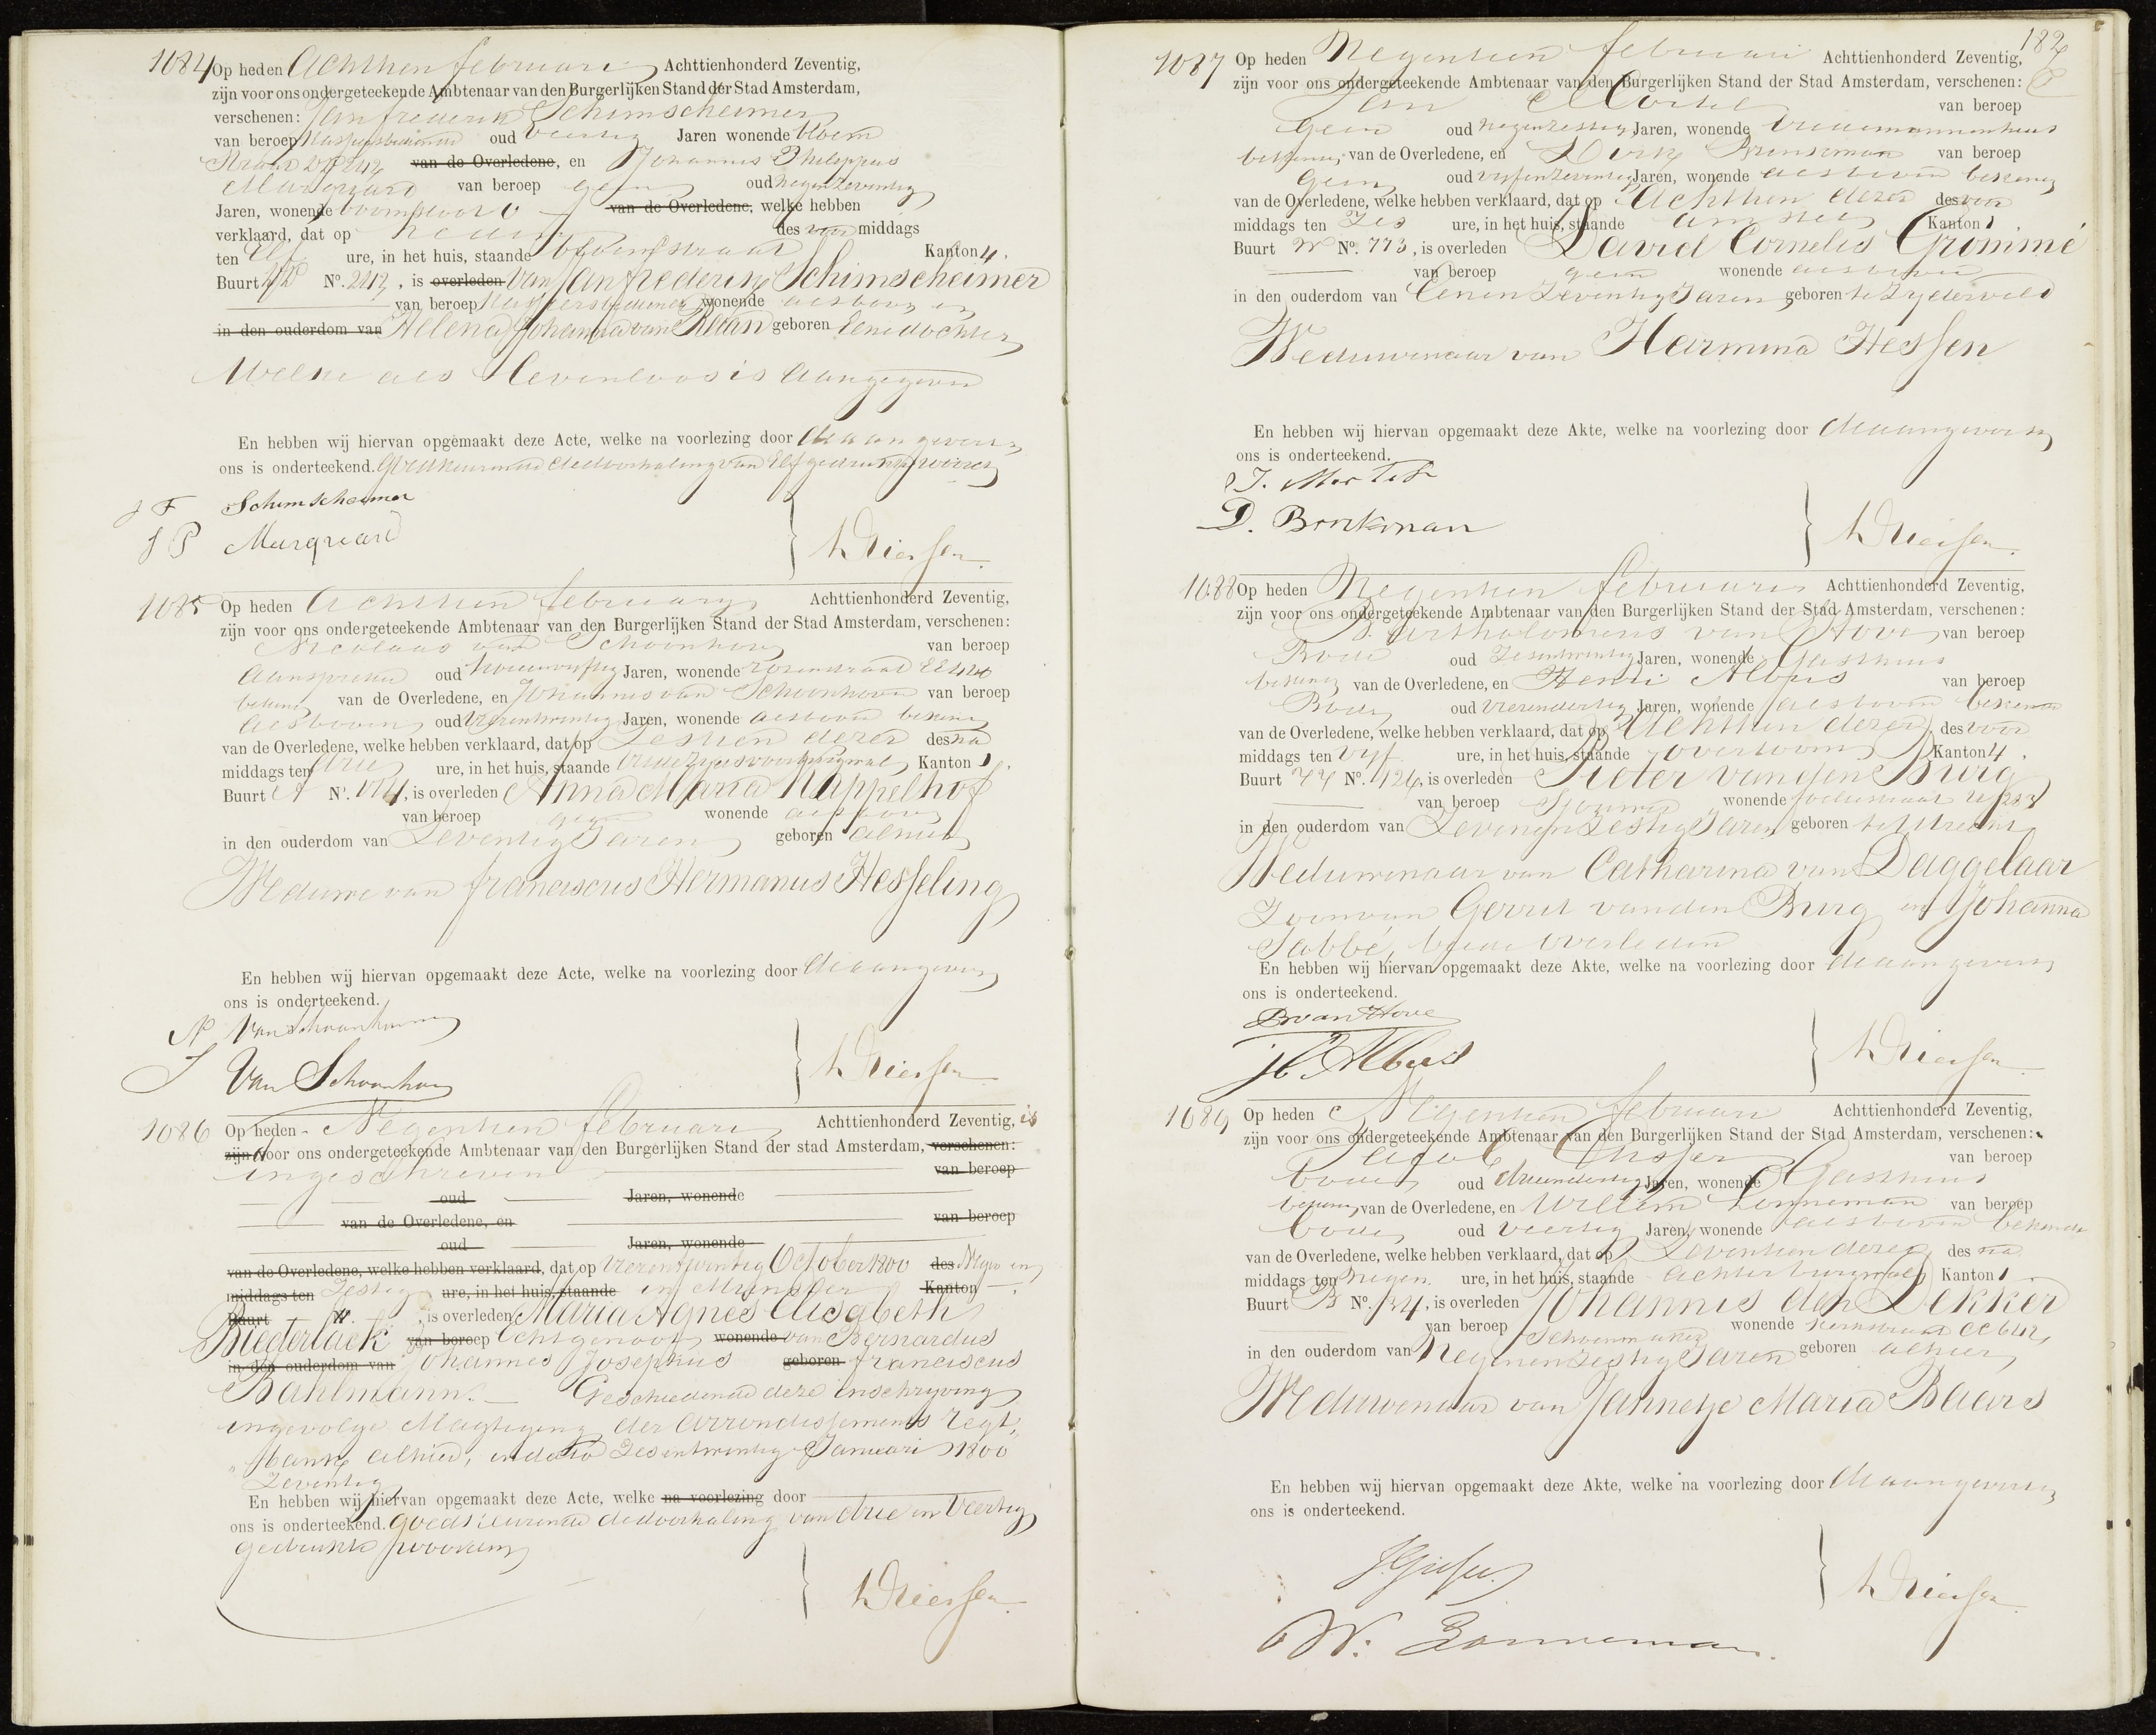 1084 Op heden Achttien februari Achttienhonderd Zeventig,
zijn voor ons ondergeteekende Ambtenaar van den Burgerlijken Stand der Stad Amsterdam,
verschenen: Jan frederik Schimscheimer
van beroep oud Veertig Jaren wonende bloem
straat van de Overledene, en Johannes Philippus
Marquard van beroep geen oud negenzeventig
Jaren, wonende van de Overledene, welke hebben
verklaard, dat op heden des voor middags
ten Elf ure, in het huis, staande bloemstraat Kanton 4.
Buurt No. 242, is overleden Van Jan frederik Schimscheimer
van beroep wonende als boven en
in den ouderdom van Helena Johanna van geboren Eene dochter
Welke als Levenloos is Aangegeven
En hebben wij hiervan opgemaakt deze Acte, welke na voorlezing door de aangevers
ons is onderteekend. Goedkeurende de doorhaling van Elf gedrukte woorden
J F Schimscheimer
J P Marquard
1085 Op heden Achttien february Achttienhonderd Zeventig,
zijn voor ons ondergeteekende Ambtenaar van den Burgerlijken Stand der Stad Amsterdam, verschenen:
Nicolaas van Schoonhoven van beroep
Aanspreker oud Jaren, wonende rozenstraat
bekende van de Overledene, en Johannes van Schoonhoven van beroep
als boven oud Vierentwintig Jaren, wonende als boven bekende
van de Overledene, welke hebben verklaard, dat op Zestien dezer des na
middags ten drie ure, in het huis, staande Kanton 1.
Buurt A No. , is overleden Anna Maria Kappelhof
van beroep geen wonende als boven
in den ouderdom van Zeventig Jaren geboren alhier
Weduwe van franciscus Hermanus Hesseling
En hebben wij hiervan opgemaakt deze Acte, welke na voorlezing door de aangevers
ons is onderteekend.
N Van Schoonhoven
J Van Schoonhoven
1086 Op heden Negentien februari Achttienhonderd Zeventig, is
zijn door ons ondergeteekende Ambtenaar van den Burgerlijken Stand der stad Amsterdam, verschenen:
ingeschreven van beroep
oud Jaren, wonende
van de Overledene, en van beroep
oud Jaren, wonende
van de Overledene, welke hebben verklaard, dat op Vierentwintig October 1800 des Negen en
middags ten Zestig ure, in het huis, staande in Munster Kanton
Buurt N. , is overleden Maria Agnes Elisabeth
Biederlack van beroep Echtgenoot wonende van Bernardus
in den ouderdom van Johannes Josephus geboren franciscus
Bahlmann. Geschiedende deze inschryving
ingevolge Magtiging der Arrondissements regt
bank alhier, in dato Zesentwintig Januari 1800
Zeventig
En hebben wij hiervan opgemaakt deze Acte, welke na voorlezing door
ons is onderteekend. goedkeurende de doorhaling van drie en Veertig
gedrukte woorden
182
1087 Op heden Negentien februari Achttienhonderd Zeventig,
zijn voor ons ondergeteekende Ambtenaar van den Burgerlijken Stand der Stad Amsterdam, verschenen:
van beroep
Geen oud negenzestig Jaren, wonende Oudemannenhuis
bekende van de Overledene, en Dirk Brinkman van beroep
Geen oud vyfenzeventig Jaren, wonende als boven bekende
van de Overledene, welke hebben verklaard, dat op Achttien dezer des voor
middags ten Zes ure, in het huis, staande amstel Kanton 1.
Buurt W No. 773, is overleden David Cornelis Grommé
van beroep geen wonende als boven
in den ouderdom van Eenen Zeventig Jaren geboren te Zyderveld
Weduwenaar van Harmina Hessen
En hebben wij hiervan opgemaakt deze Akte, welke na voorlezing door de aangevers
ons is onderteekend.
D. Brinkman
1088 Op heden Negentien februari Achttienhonderd Zeventig,
zijn voor ons ondergeteekende Ambtenaar van den Burgerlijken Stand der Stad Amsterdam, verschenen:
Bartholomeus van Hove van beroep
Bode oud Zesentwintig Jaren, wonende Gasthuis
bekende van de Overledene, en Henri Albus van beroep
Bode oud Vierendertig Jaren, wonende als boven bekende
van de Overledene, welke hebben verklaard, dat op Achttien dezer des voor
middags ten Vyf ure, in het huis, staande overtoom Kanton 4.
Buurt YY No. 126, is overleden Pieter van den Burg
van beroep wonende
in den ouderdom van Zevenen Zestig Jaren geboren te Utrecht
Weduwenaar van Catharina van Daggelaar
Zoon van Gerrit van den Burg en Johanna
Sabbé, beide overleden
En hebben wij hiervan opgemaakt deze Akte, welke na voorlezing door de aangevers
ons is onderteekend.
B van Hove
H. Albus
1089 Op heden Negentien februari Achttienhonderd Zeventig,
zijn voor ons ondergeteekende Ambtenaar van den Burgerlijken Stand der Stad Amsterdam, verschenen:
Jacob van beroep
bode oud drieendertig Jaren, wonende Gasthuis
bekende van de Overledene, en Willem Lonneman van beroep
bode oud Veertig Jaren, wonende als boven bekende
van de Overledene, welke hebben verklaard, dat op Zeventien dezer des na
middags ten Negen ure, in het huis, staande achterburgwal Kanton 1.
Buurt B No. 134, is overleden Johannes den Dekker
van beroep Schoenmaker wonende Kerkstraat
in den ouderdom van Negenen Zestig Jaren geboren alhier
Weduwenaar van Jannetje Maria Baars
En hebben wij hiervan opgemaakt deze Akte, welke na voorlezing door de aangevers
ons is onderteekend.
W. Lonneman